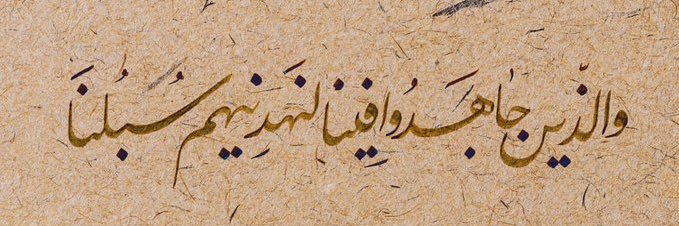 والذّين جٰاهَدُوافِينالنَهَدِينهم سُبُلنَا